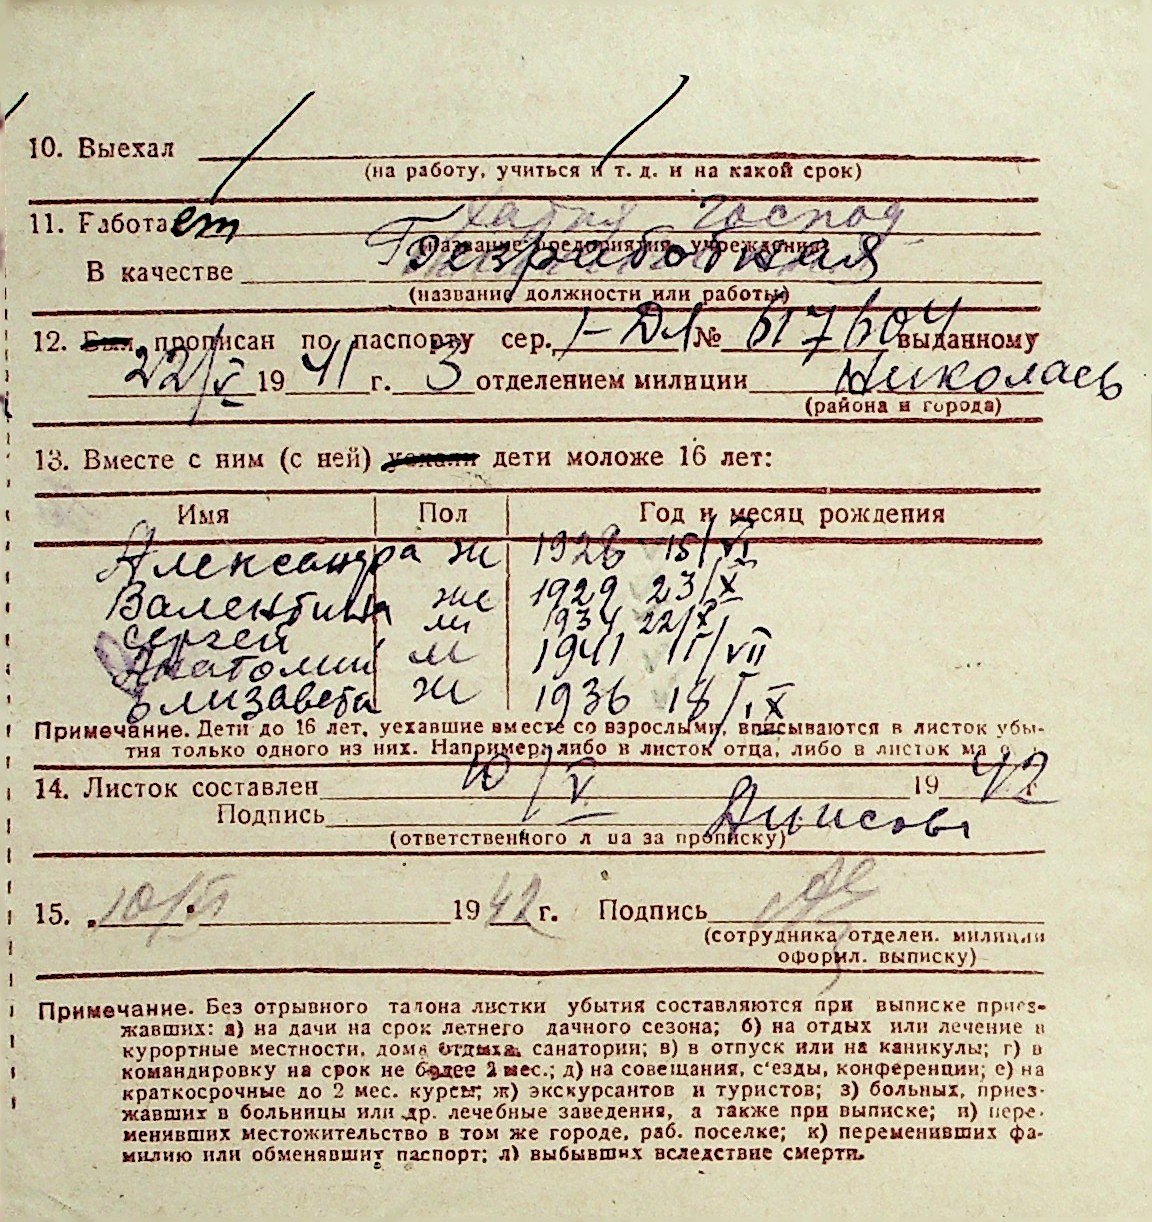 10. Выехал
(на работу, учиться и т. д. и на какой срок)
11. Работает
(название предприятия, учреждения)
Безработная
В качестве
(название должности или работы)
12. Был прописан по паспорту сер. I-ДЛ № 617604 выданному
22/V 1941 г. 3 отделением милиции Николаевь
(района и города)
13. Вместе с ним (с ней) уехали дети моложе 16 лет:
Имя Пол Год и месяц рождения
Александра ж 1928 15/VI
Валентина же 1929 23/X
Сергей м 1934 22/X
Анатолий м 1941 11/VII
Елизавета ж 1936 18/IX
Примечание. Дети до 16 лет, уехавшие вместе со взрослыми, вписываются в листок убы-
тия только одного из них. Например: либо в листок отца, либо в листок ма
14. Листок составлен 10/V 1942 г
Подпись
(ответственного лица за прописку)
15. 10/VI 1942 г. Подпись
(сотрудника отделен. милиции
офорил. выписку)
Примечание. Без отрывного талона листки убытия составляются при выписке приез-
жавших: а) на дачи на срок летнего дачного сезона; б) на отдых или лечение в
курортные местности, дома отдыха, санатории; в) в отпуск или на каникулы; г) в
командировку на срок не более 2 мес.; д) на совещания, с'езды, конференции; е) на
краткосрочные до 2 мес. курсы; ж) экскурсантов и туристов; з) больных, приез-
жавших в больницы или др. лечебные заведения, а также при выписке; и) пере-
менивших местожительство в том же городе, раб. поселке; к) переменивших фа-
милию или обменявших паспорт; л) выбывших вследствие смерти.